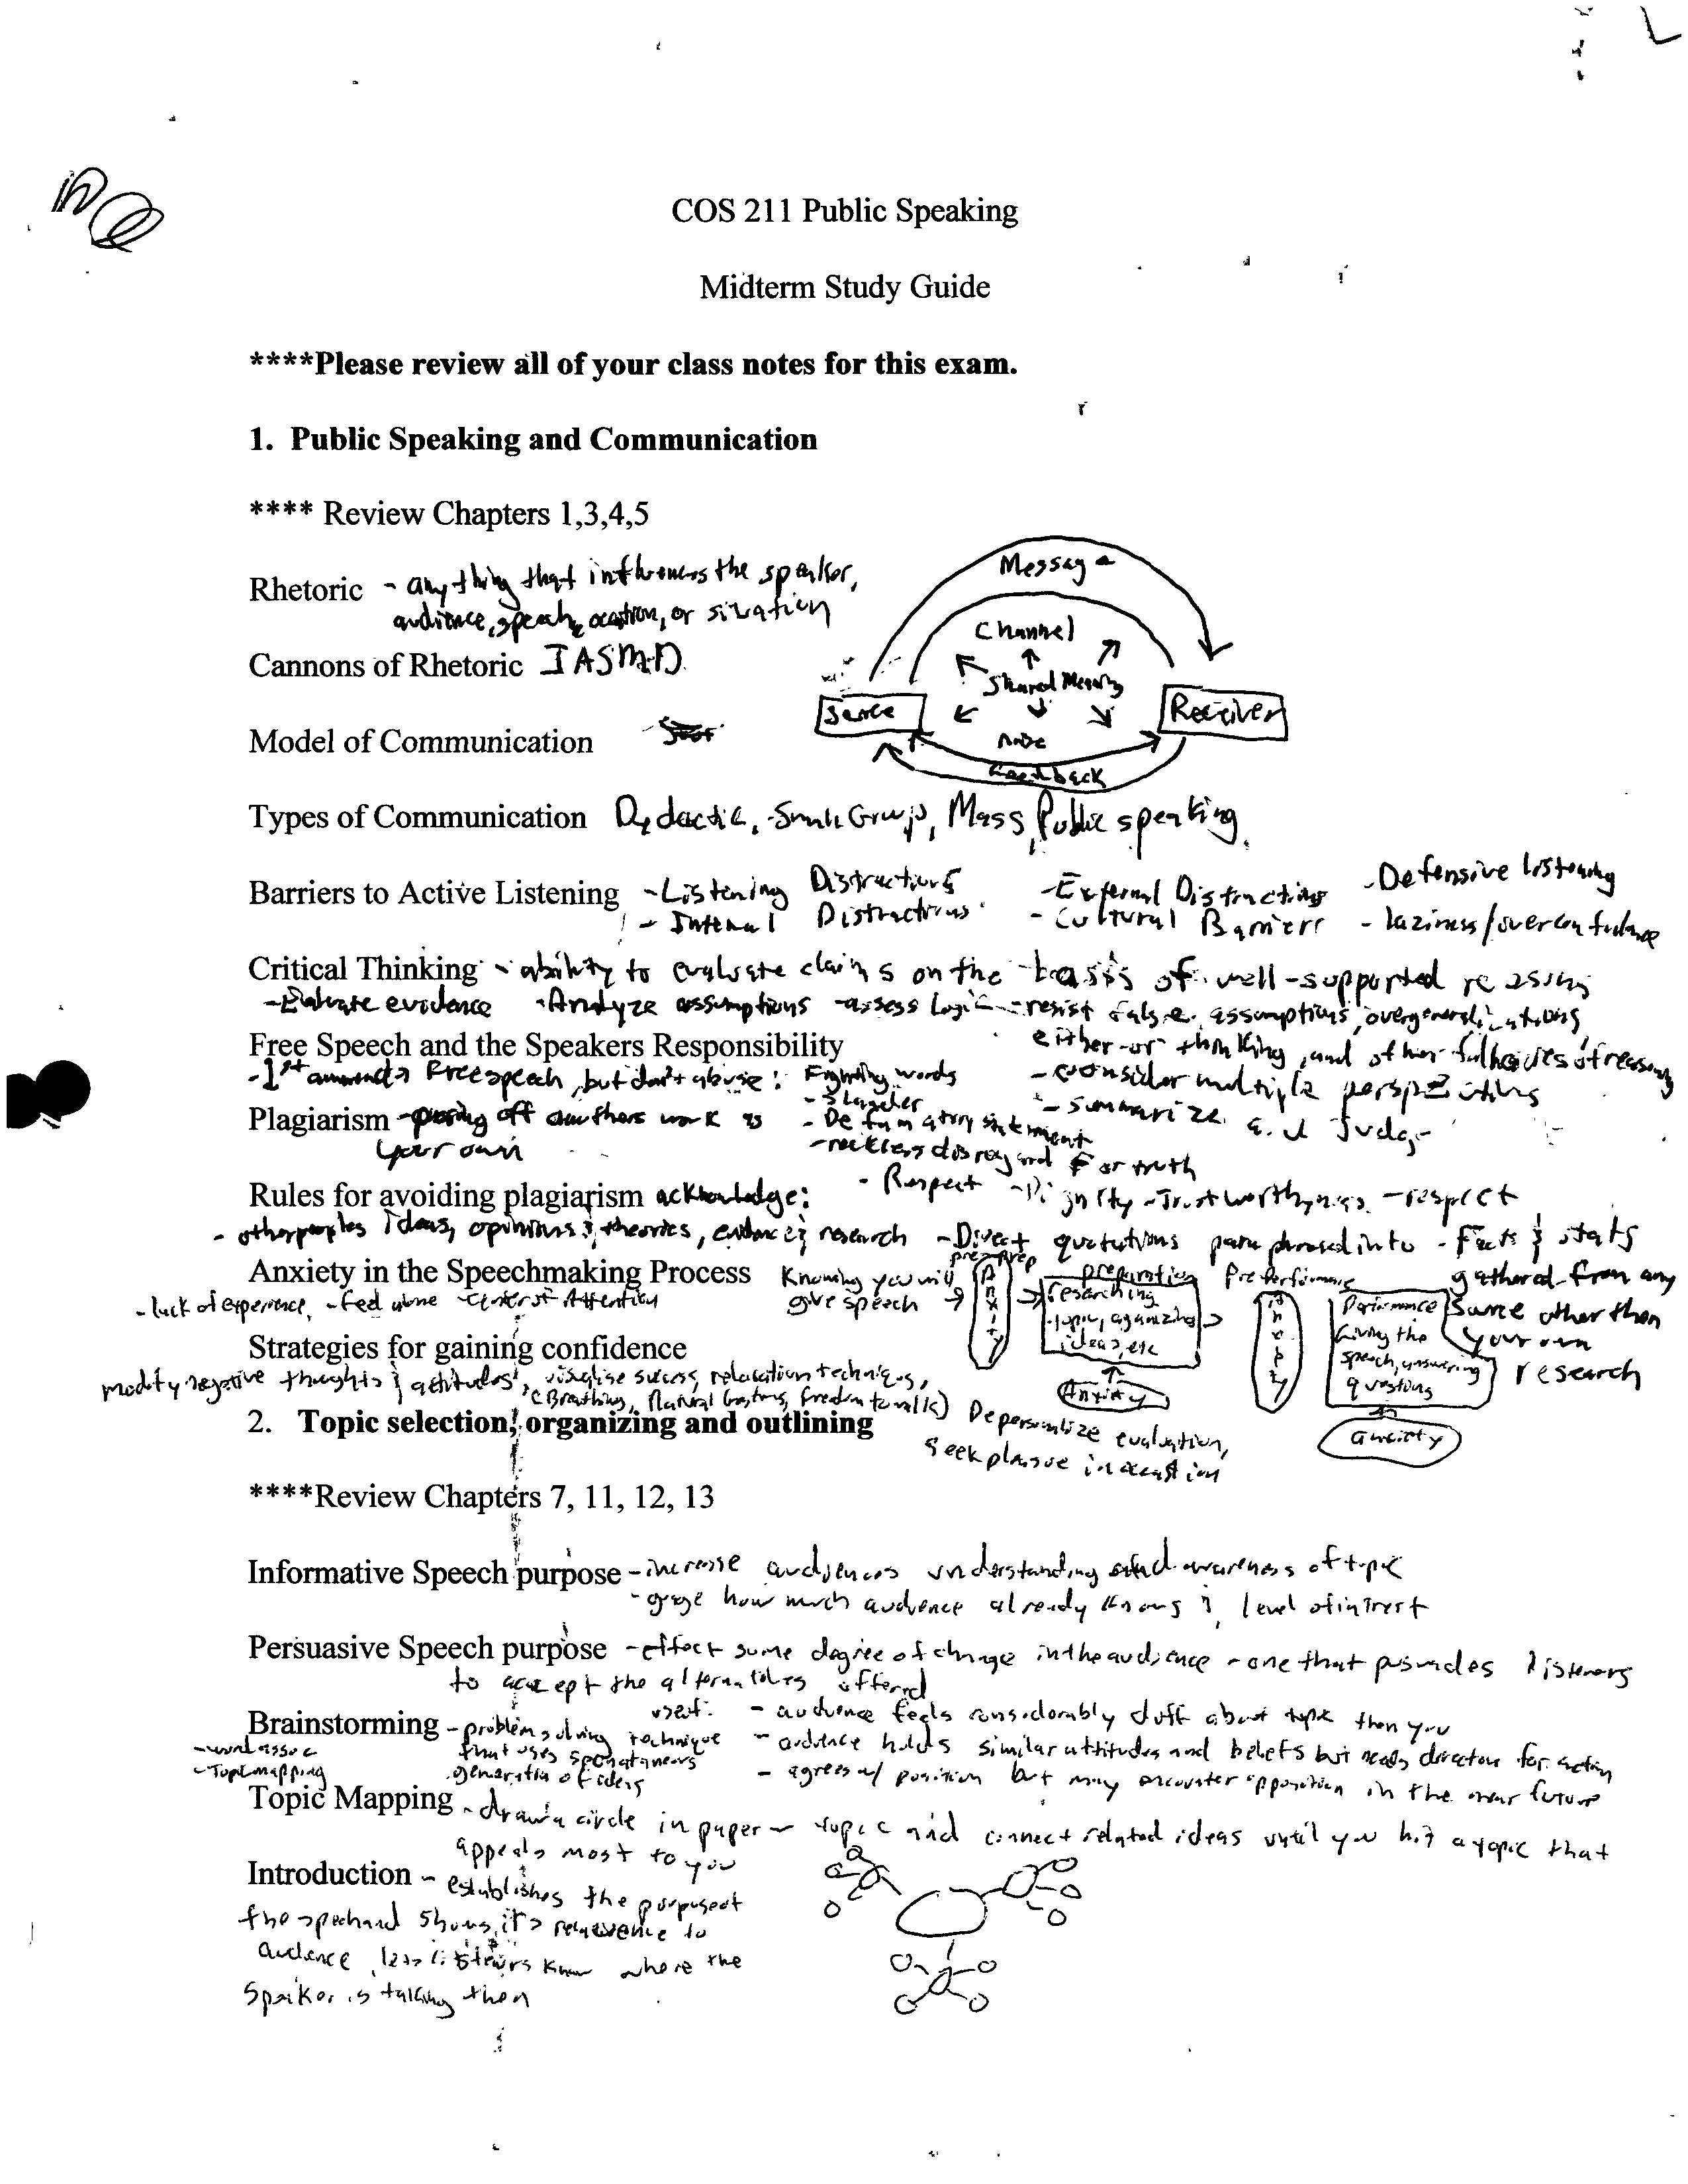 COS 211 Public Speaking
Midterm Study Guide
****Please review all of your class notes for this exam.
1. Public Speaking and Communication
**** Review Chapters 1,3,4,5
Rhetoric - anything that influences the speaker,
audience, speech, occation, or situation
Message
Channel
Shared Meaning
Source
Receiver
noise
feedback
Cannons of Rhetoric IASMD
Model of Communication
Types of Communication Dydactic, Small Group, Mass, Public speaking
Barriers to Active Listening - Listening Distractions - External Distractions - Defensive listening
- Internal Distractions - Cultural Barriers - laziness/overconfidence
Critical Thinking - ability to evaluate claims on the basis of well-supported reasons
- Evaluate evidence - Analyze assumptions - assess logic - resist false assumptions, overgeneralizations,
either-or thinking, and other fallacies of reasoning
- consider multiple perspectives
- summarize and Judge
Free Speech and the Speakers Responsibility
- 1st Free speech, but don't abuse: Fighting words
- Slander
- Defamatory statement
- reckless disregard For truth
Plagiarism - passing off authors work as
your own
- Respect - Dignity - Trustworthyness - respect
Rules for avoiding plagiarism acknowledge:
- other peoples ideas, opinions & theories, evidence & research - Direct quotations paraphrased into - Facts & stats
gathered from any
source other then
your own
research
Anxiety in the Speechmaking Process
- lack of experience, - feel alone - Center of Attention
Knowing you will
give speech
pre-prep
Anxiety
preparation
researching
topic, organizing
ideas, etc
Anxiety
Preperformance
Performance
Giving the
speech, answering
questions
anxiety
Strategies for gaining confidence
modify negative thoughts & attitudes, visualise success, relaxation techniques,
(Breathing, Natural Gestures, freedom to walk) Depersonalize evaluation,
seek plasue in occastion
2. Topic selection, organizing and outlining
****Review Chapters 7, 11, 12, 13
Informative Speech purpose - increase audiences understanding and awareness of topic
- gage how much audience already knows & level of intrest
Persuasive Speech purpose - effect some degree of change in the audience - one that persuades listeners
to accept the alternatives offered
used:
- audience feels considerably diff about topic then you
- audience holds similar attitudes and beliefs but needs direction for action
- agrees w/ position but may encounter opposition in the near future
Brainstorming - problem solving technique
that uses spontaneous
generation of ideas
- word assoc
- Topic mapping
Topic Mapping - draw a circle in paper - topic and connect related ideas until you hit a topic that
appeals most to you
Introduction - establishes the purpose of
the speech and shows it's relevence to
audience, lets listeners know where the
Speaker is taking them